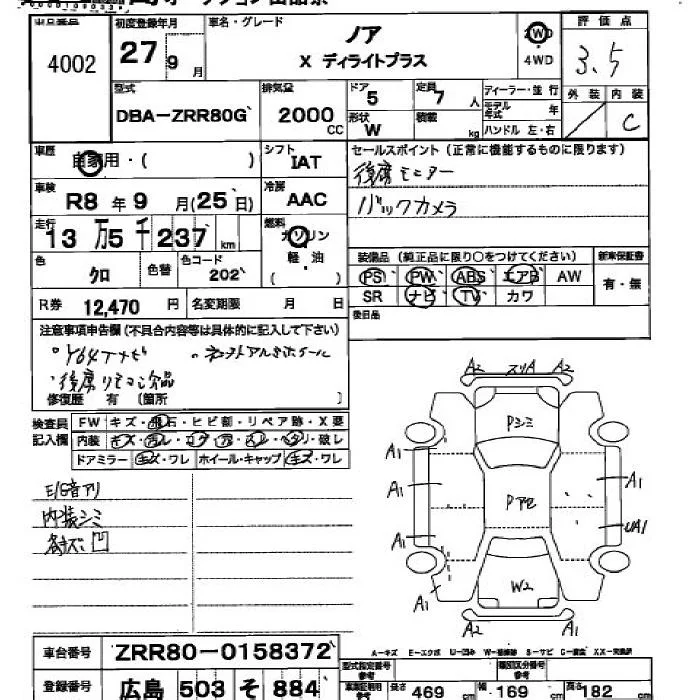 出品番号 初度登録年月 車名・グレード 評価点
4002 27 9 月 ノア 2WD 4WD 3.5
X ディライトプラス
型式 排気量 ドア 5 定員 7 人 ディーラー・並行 外装 内装
DBA-ZRR80G 2000 CC 形状 W 積載 kg モデル年式 年 C
ハンドル 左・右
車歴 自家用・( ) シフト IAT セールスポイント (正常に機能するものに限ります)
後席モニター
車検 R8 年 9 月 (25 日) 冷房 AAC バックカメラ
走行 13 万 5 千 237 km 燃料 ガソリン 軽・油 ( )
装備品 (純正品に限り○をつけてください) 新車保証書
色 クロ 色替 色コード 202 PS PW ABS エアB AW 有・無
SR ナビ TV カワ
R券 12,470 円 名変期限 月 日 後日品
注意事項申告欄 (不具合内容等は具体的に記入して下さい)
後席リモコン欠品
修復歴 有 〔箇所 〕
検査員 FW キズ・飛石・ヒビ割・リペア跡・X要
記入欄 内装 キズ・汚レ・コゲ・穴・スレ・ヘタリ・破レ
ドアミラー キズ・ワレ ホイール・キャップ キズ・ワレ
E/G音アリ
内装シミ
各キズ凹
A2 スリA A2
Pシミ
A1
A1 A1
P アセ
A1 UA1
W2
A1
A2 A1
車台番号 ZRR80-0158372
A-キズ E-エクボ
登録番号 広島 503 そ 884 型式指定番号 参考 類別区分番号 参考
長さ 469 cm 幅 169 cm 高さ 182 cm